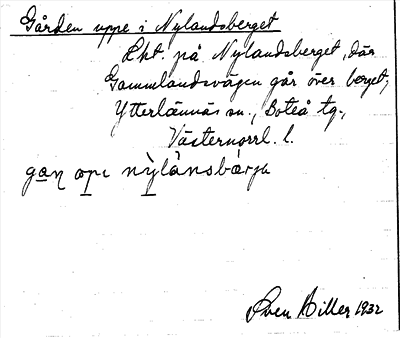 Gården uppe i Nylandsberget
Lht. på Nylandsberget, där
Gammlandsvägen går över berget,
Ytterlännäs sn., Boteå tg.,
Västernorrl. l.
gaꞑ ɷpe nỳlánsbǽrja
Sven Hiller 1932